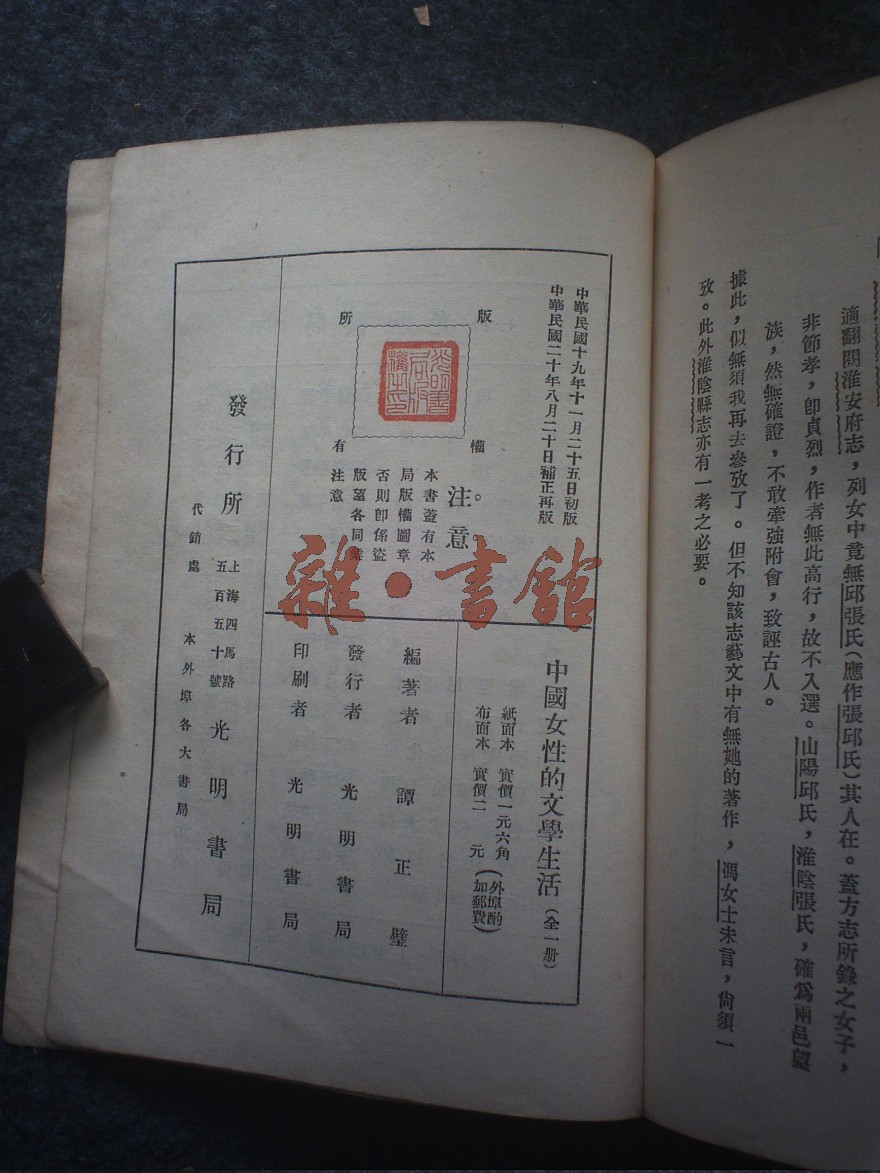 適翻閱淮安府志，列女中竟無邱張氏（應作張邱氏）其人在。蓋方志所錄之女子，
非節孝，卽貞烈，作者無此高行，故不入選。山陽邱氏，淮陰張氏，確爲兩邑望
族，然無確證，不敢牽強附會，致誣古人。
據此，似無須我再去參攷了。但不知該志藝文中有無她的著作，馮女士未言，尙須一
攷。此外淮陰縣志亦有一考之必要。
中華民國十九年十一月二十五日初版
中華民國二十年八月二十日補正再版
版權所有
光明書局版權之印
注意
本書蓋有本
局版權圖章
否則卽係盜
版望各同業
注意
中國女性的文學生活（全一册）
紙面本 實價一元六角
布面本 實價二元
（外埠酌加郵費）
編著者 譚正璧
發行者 光明書局
印刷者 光明書局
發行所 上海四馬路五百五十號 光明書局
代銷處 本外埠各大書局
雜·書館